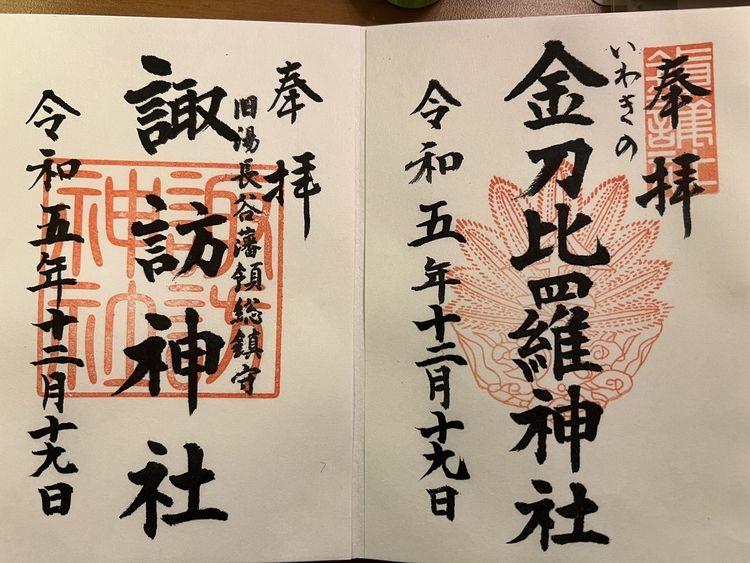 奉拝
いわきの
金刀比羅神社
令和五年十二月十九日
奉拝
旧湯長谷藩領総鎮守
諏訪神社
諏訪神社
令和五年十二月十九日